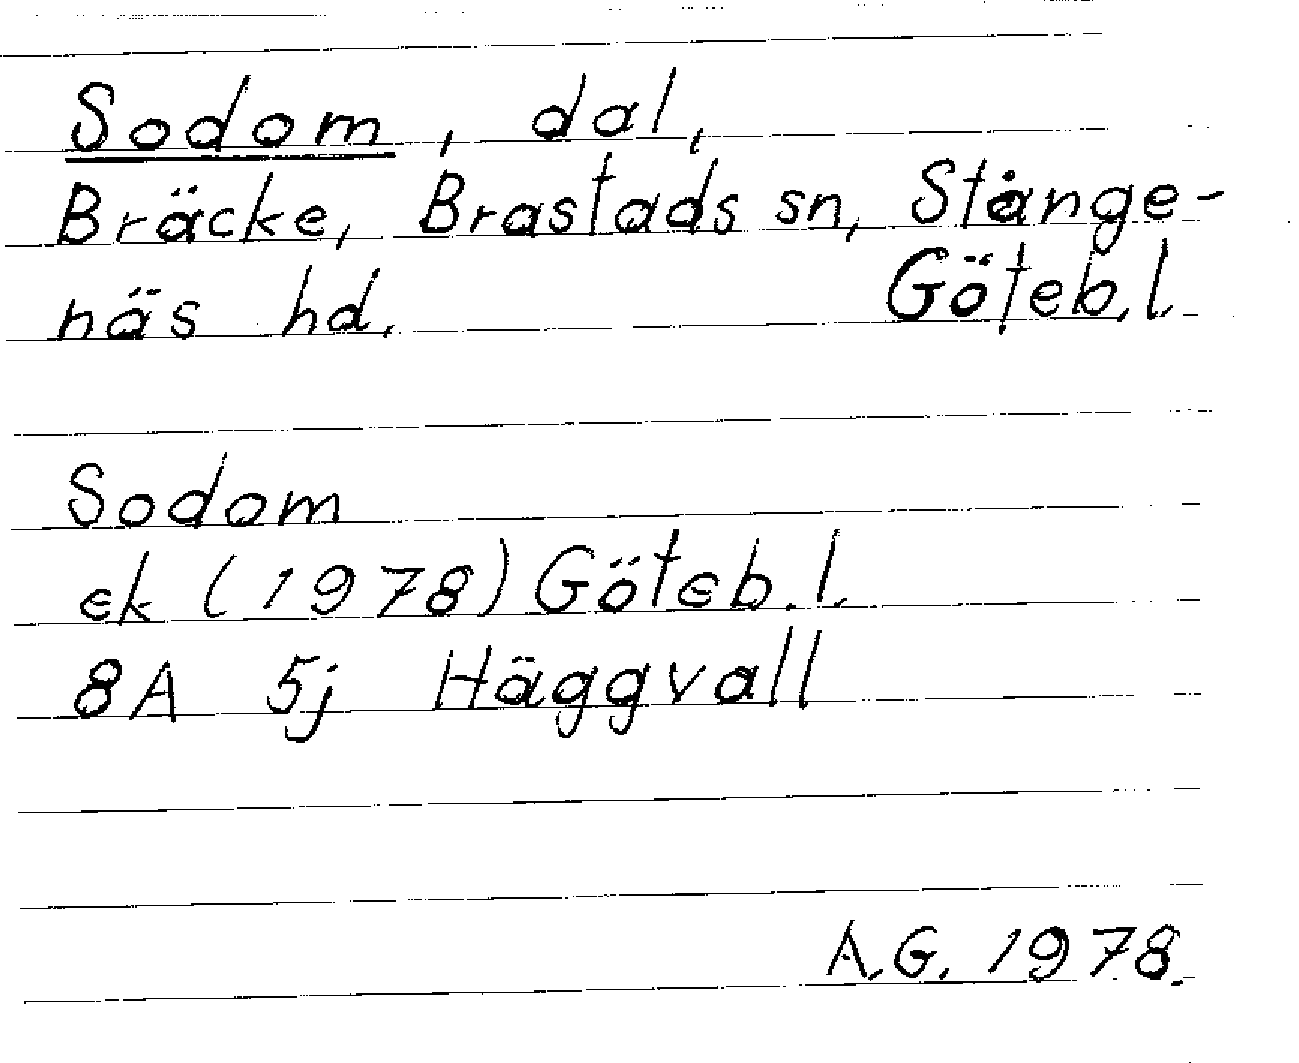 Sodom, dal,
Bräcke, Brastads sn, Stånge-
näs hd. Göteb.l.
Sodom
ek (1978) Göteb.l.
8A 5j Häggvall
A.G. 1978.